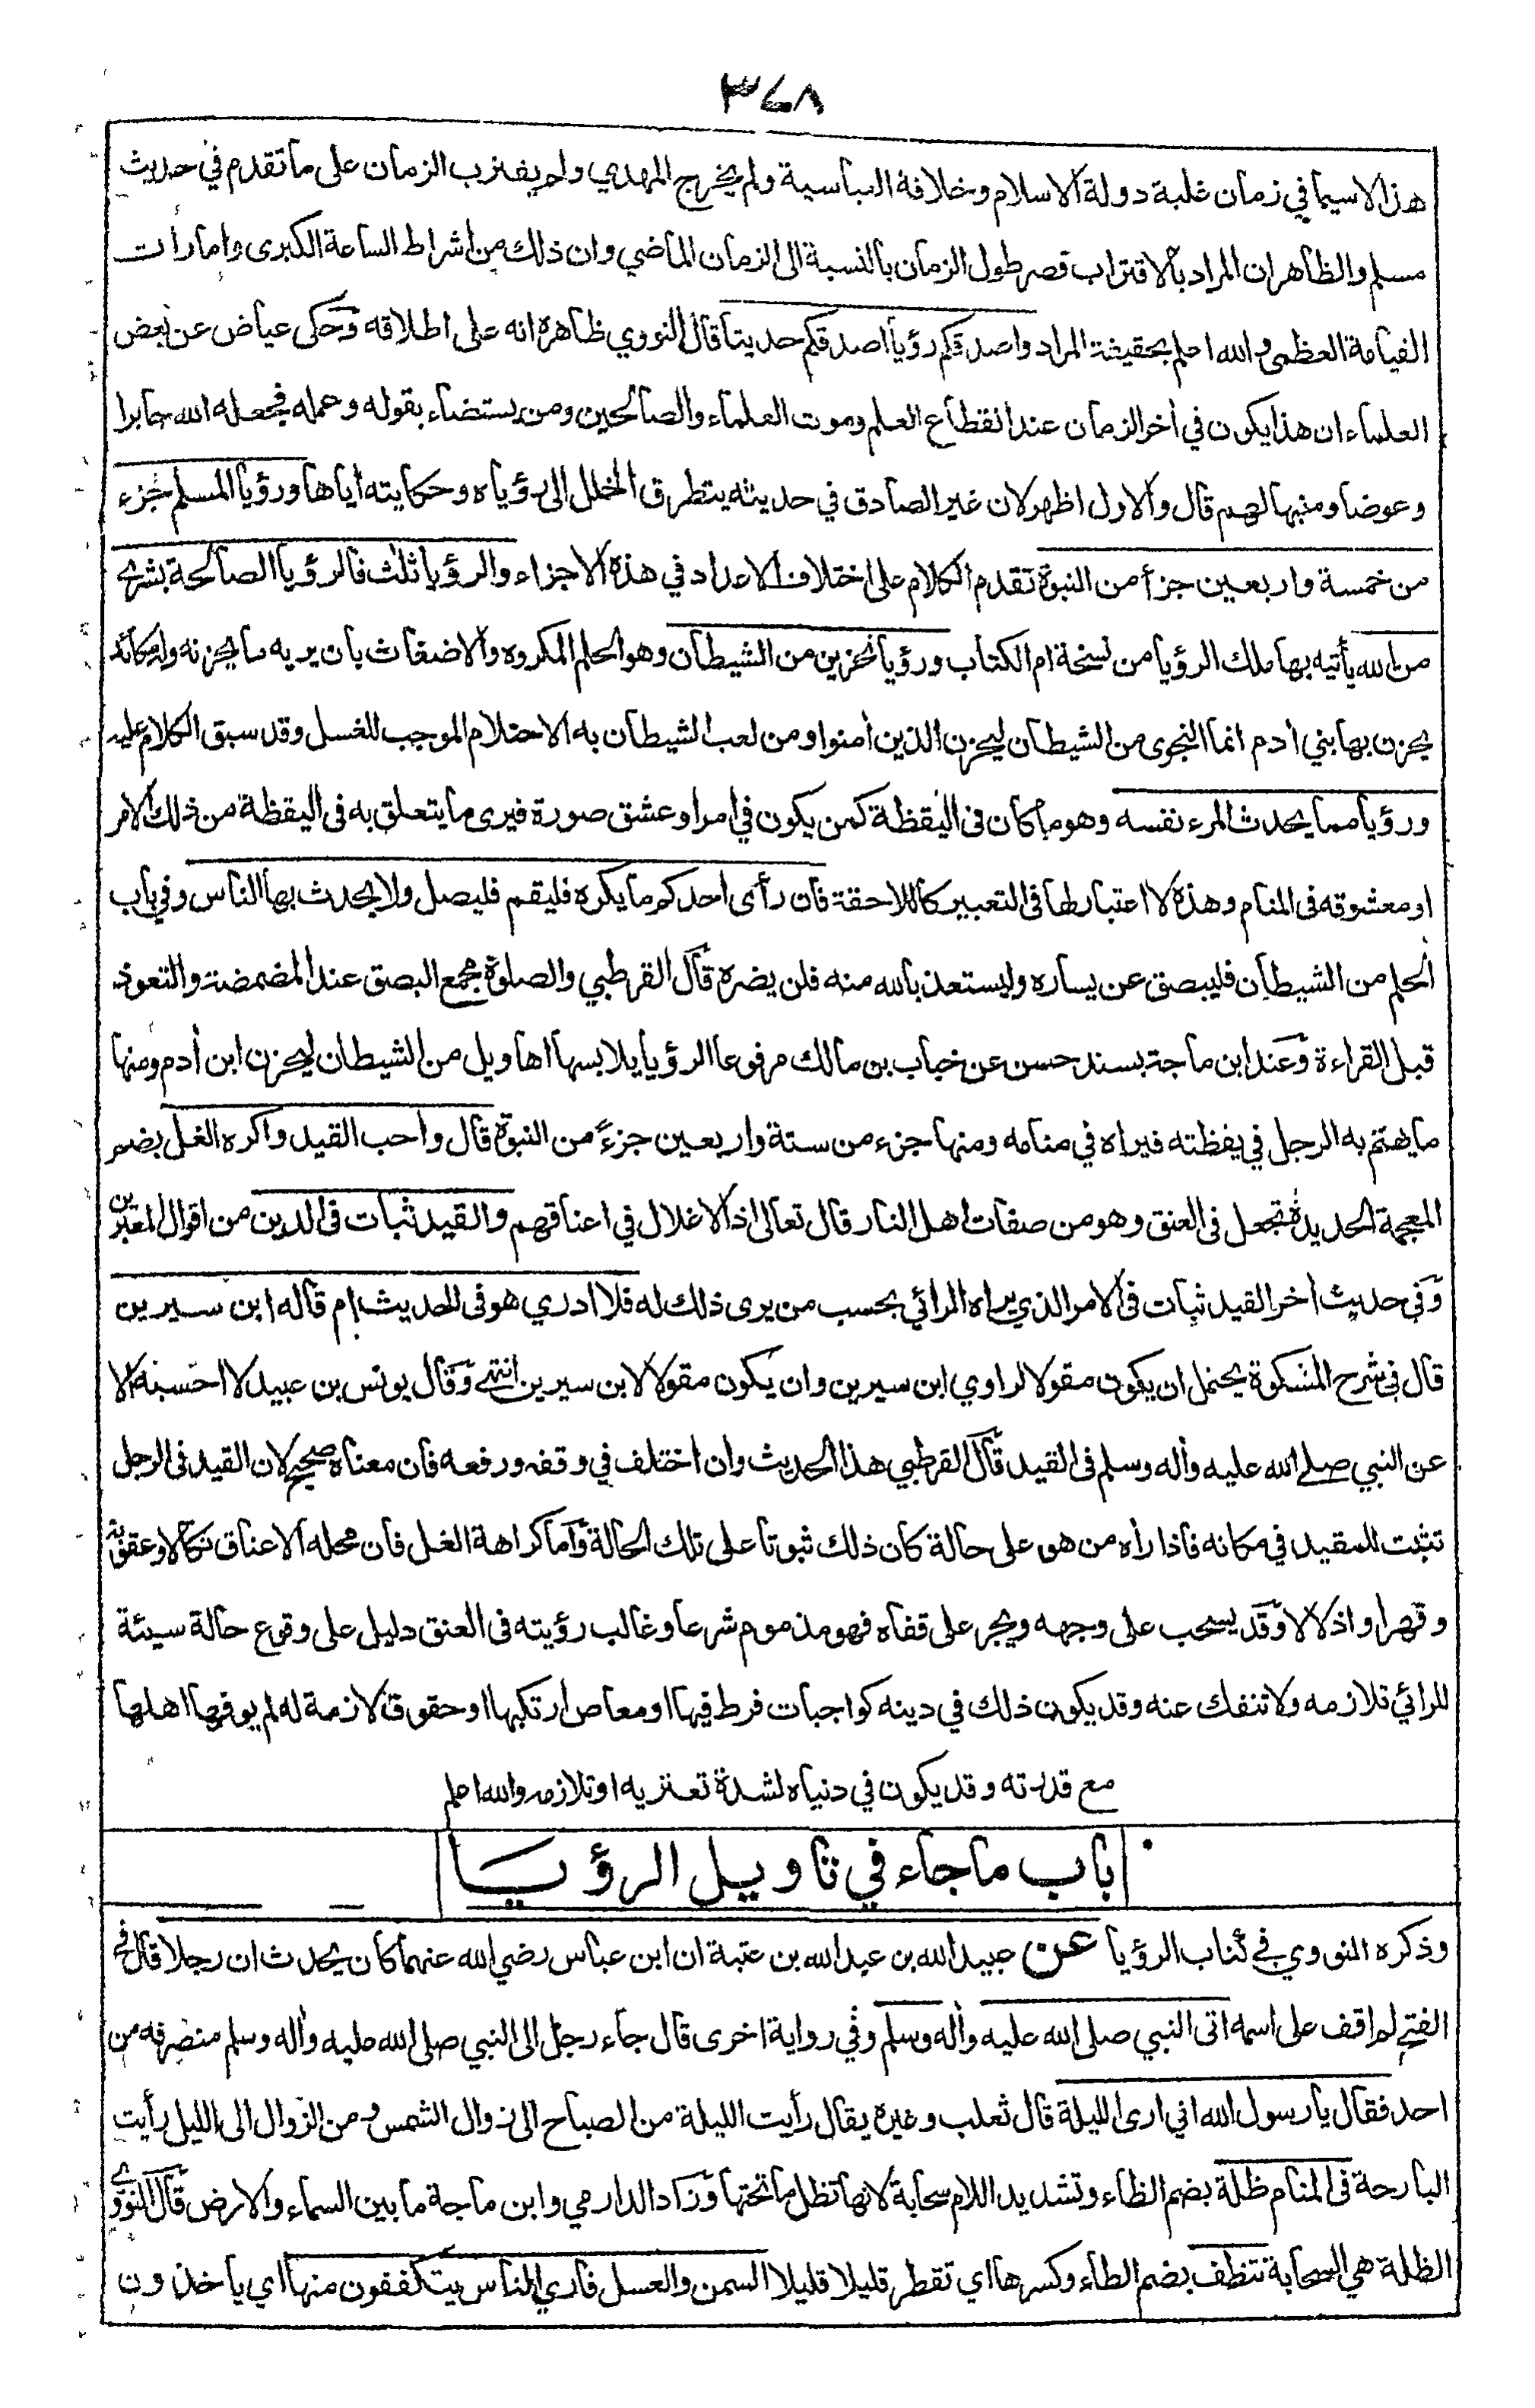 ٣٤٨
هذا لاسيما في زمان غلبة دولة الاسلام وخلافة العباسية ولم يخرج المهدي ولم يقترب الزمان على ما تقدم في حديث
مسلم والظاهر ان المراد بالاقتراب قصر طول الزمان بالنسبة الى الزمان الماضي وان ذلك من اشراط الساعة الكبرى وامارات
القيامة العظمى والله اعلم بحقيقة المراد واصدقكم رؤيا اصدقكم حديثا قال النووي ظاهره انه على اطلاقه وحكى عياض عن بعض
العلماء ان هذا يكون في أخر الزمان عند انقطاع العلم وموت العلماء والصالحين ومن يستضاء بقوله وعمله فجعله الله جابرا
وعوضا ومنبها لهم قال والاول اظهر لان غير الصادق في حديثه يتطرق الخلل الى رؤياه وحكايته أياها ورؤيا المسلم جزء
من خمسة واربعين جزأ من النبوة تقدم الكلام على اختلاف الاعداد في هذه الاجزاء والرؤيا ثلث فالرؤيا الصالحة بشرى
من الله يأتيه بها ملك الرؤيا من نسخة ام الكتاب ورؤيا تحزين من الشيطان وهو الحلم المكروه والاضغاث بان يريه ما يحزنه وله مكائد
يحزن بها بني أدم انما النجوى من الشيطان ليحزن الذين أمنوا ومن لعب الشيطان به الاحتلام الموجب للغسل وقد سبق الكلام عليه
ورؤيا مما يحدث المرء نفسه وهو ما كان فى اليقظة كمن يكون في امر او عشق صورة فيرى ما يتعلق به فى اليقظة من ذلك الامر
او معشوقه فى المنام وهذه لا اعتبار لها فى التعبير كاللاحقة فان رأى احدكم ما يكره فليقم فليصل ولا يحدث بها الناس وفي باب
الحلم من الشيطان فليبصق عن يساره وليستعذ بالله منه فلن يضره قال القرطبي والصلوة تجمع البصق عند المضمضة والتعوذ
قبل القراءة وعند ابن ماجة بسند حسن عن خباب بن مالك مرفوعا الرؤيا يلابسها اهاويل من الشيطان ليحزن ابن أدم ومنها
ما يهتم به الرجل في يقظته فيراه في منامه ومنها جزء من ستة واربعين جزءً من النبوة قال واحب القيد واكره الغل بضم
المعجمة الحديدة تجعل فى العنق وهو من صفات اهل النار قال تعالى اذ الاغلال في اعناقهم والقيد ثبات فى الدين من اقوال المعبرين
وفي حديث أخر القيد ثبات فى الامر الذي يراه الرائي بحسب من يرى ذلك له فلا ادري هو فى الحديث ام قاله ابن سيرين
قال فى شرح المشكوة يحتمل ان يكون مقولا لراوي ابن سيرين وان يكون مقولا لابن سيرين انتهى وقال يونس بن عبيد لا احسبه الا
عن النبي صلى الله عليه وأله وسلم فى القيد قال القرطبي هذا الحديث وان اختلف في وقفه ورفعه فان معناه صحيح لان القيد فى الرجل
تثبت للمقيد في مكانه فاذا رأه من هو على حالة كان ذلك ثبوتا على تلك الحالة واما كراهة الغل فان محله الاعناق نكالا وعقوبة
وقهرا واذلالا وقد يسحب على وجهه ويجر على قفاه فهو مذموم شرعا وغالب رؤيته فى العنق دليل على وقوع حالة سيئة
للرائي تلازمه ولا تنفك عنه وقد يكون ذلك في دينه كواجبات فرط فيها او معاص ارتكبها او حقوق لازمة له لم يوفها اهلها
مع قدرته وقد يكون في دنياه لشدة تعتريه او تلازمه والله اعلم
باب ما جاء في تاويل الرؤيا
وذكره النووي في كتاب الرؤيا عن عبيد الله بن عبد الله بن عتبة ان ابن عباس رضي الله عنهما كان يحدث ان رجلا قال فى
الفتح لم اقف على اسمه اتى النبي صلى الله عليه وأله وسلم وفي رواية اخرى قال جاء رجل الى النبي صلى الله عليه وأله وسلم منصرفه من
احد فقال يا رسول الله اني ارى الليلة قال ثعلب وغيره يقال رأيت الليلة من الصباح الى زوال الشمس ومن الزوال الى الليل رأيت
البارحة فى المنام ظلة بضم الظاء وتشديد اللام سحابة لانها تظل ما تحتها وزاد الدارمي وابن ماجة ما بين السماء والارض قال النووي
الظلة هي السحابة تنطف بضم الطاء وكسرها اي تقطر قليلا قليلا السمن والعسل فارى الناس يتكففون منها اي ياخذون